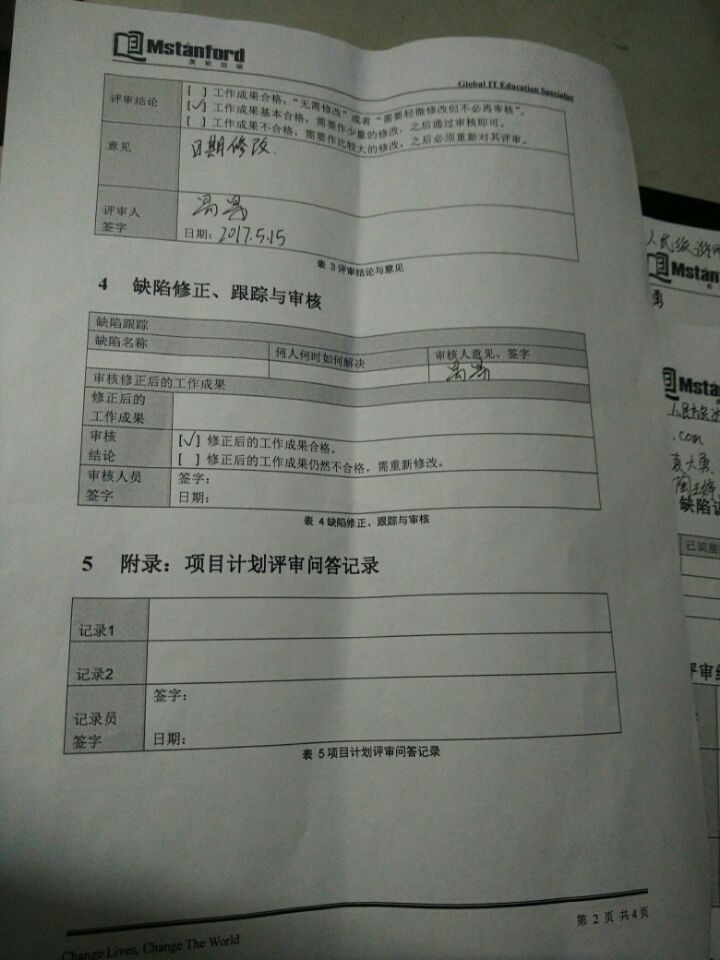 Mstanford
美斯坦福
Global IT Education Specialist
评审结论
[ ] 工作成果合格，“无需修改”或者“需要轻微修改但不必再审核”。
[√] 工作成果基本合格，需要作少量的修改，之后通过审核即可。
[ ] 工作成果不合格，需要作比较大的修改，之后必须重新对其评审。
意见
日期修改.
评审人
签字
日期：2017.5.15
表 3 评审结论与意见
4 缺陷修正、跟踪与审核
缺陷跟踪
缺陷名称 何人何时如何解决 审核人意见、签字
审核修正后的工作成果
修正后的
工作成果
审核
结论
[√] 修正后的工作成果合格。
[ ] 修正后的工作成果仍然不合格，需重新修改。
审核人员
签字
签字：
日期：
表 4 缺陷修正、跟踪与审核
5 附录：项目计划评审问答记录
记录1
记录2
记录员
签字
签字：
日期：
表 5 项目计划评审问答记录
Change Lives, Change The World
第 2 页 共4页
Mstan
Msta
.com
袁大勇
缺陷
已识别
评审